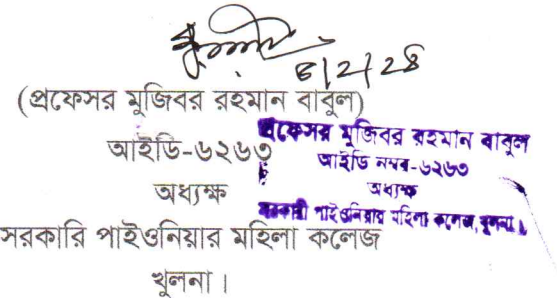 ৪/2/24
(প্রফেসর মুজিবর রহমান বাবুল)
আইডি-৬২৬৩
অধ্যক্ষ
সরকারি পাইওনিয়ার মহিলা কলেজ
খুলনা।
প্রফেসর মুজিবর রহমান বাবুল
আইডি নম্বর-৬২৬৩
অধ্যক্ষ
সরকারী পাইওনিয়ার মহিলা কলেজ, খুলনা।